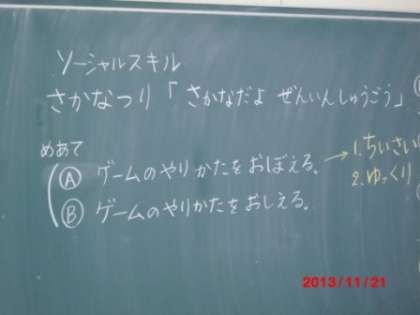 ソーシャルスキル
さかなつり「さかなだよ ぜんいんしゅうごう」
めあて
Ⓐ ゲームのやりかたをおぼえる。→ 1.ちいさい
Ⓑ ゲームのやりかたをおしえる。 2.ゆっくり
2013/11/21